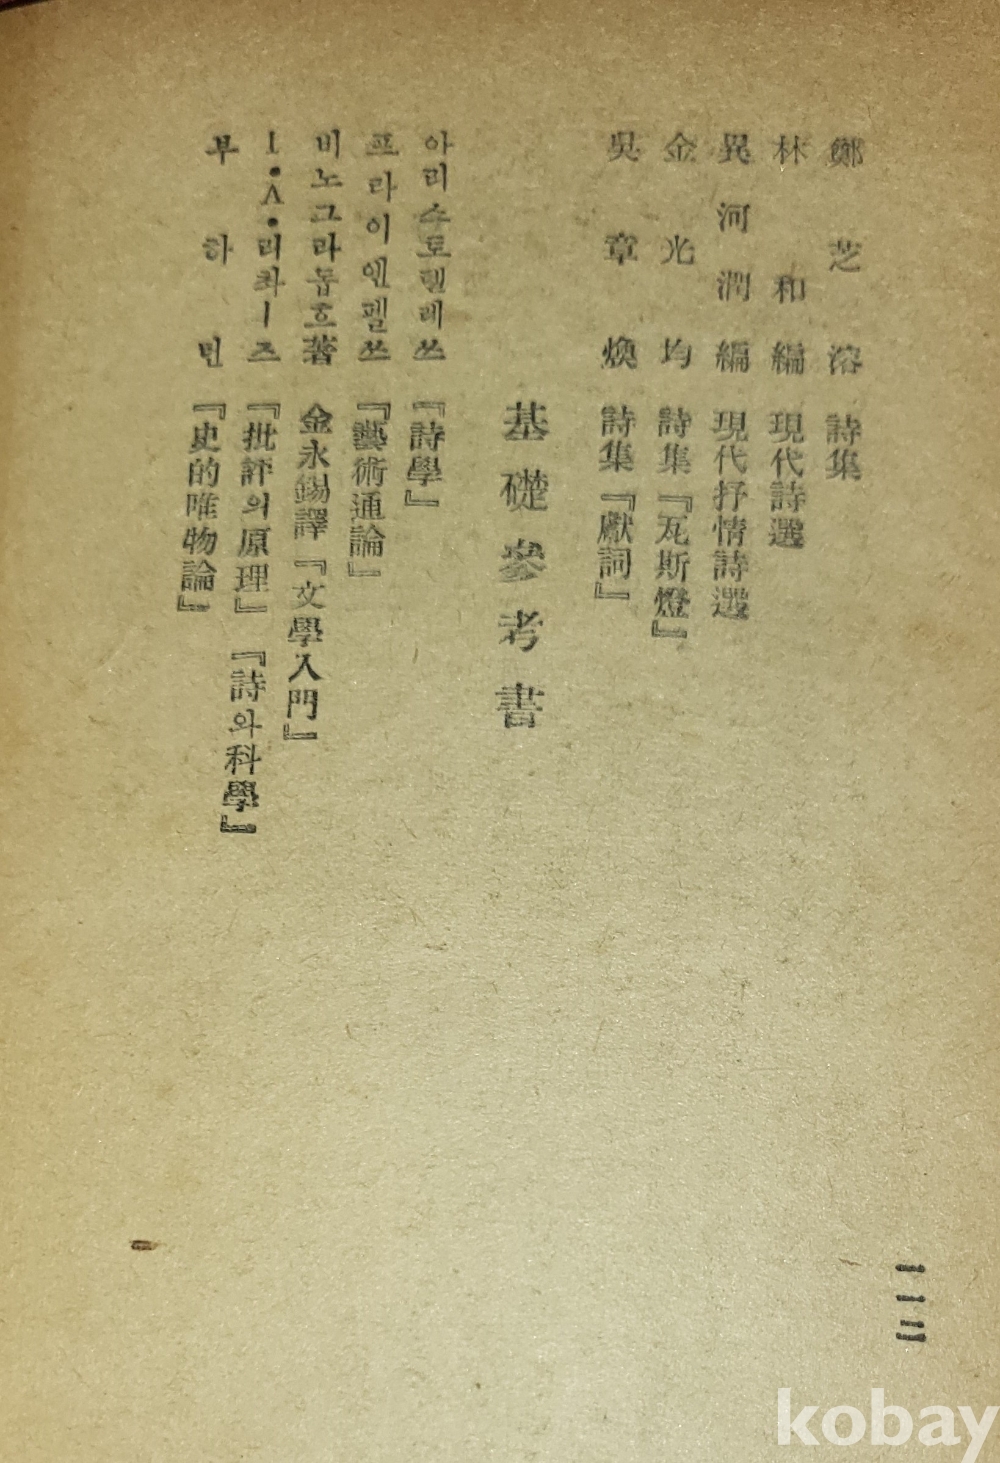 鄭芝溶 詩集
林和編 現代詩選
異河潤編 現代抒情詩選
金光均 詩集『瓦斯燈』
吳章煥 詩集『獻詞』
基礎參考書
아리스토텔레쓰 『詩學』
프라이엔펠쓰 『藝術通論』
비노그라돕흐著 金永錫譯『文學入門』
I•A•리촤ー즈 『批評의原理』『詩와科學』
부하린 『史的唯物論』
一一三
kobay